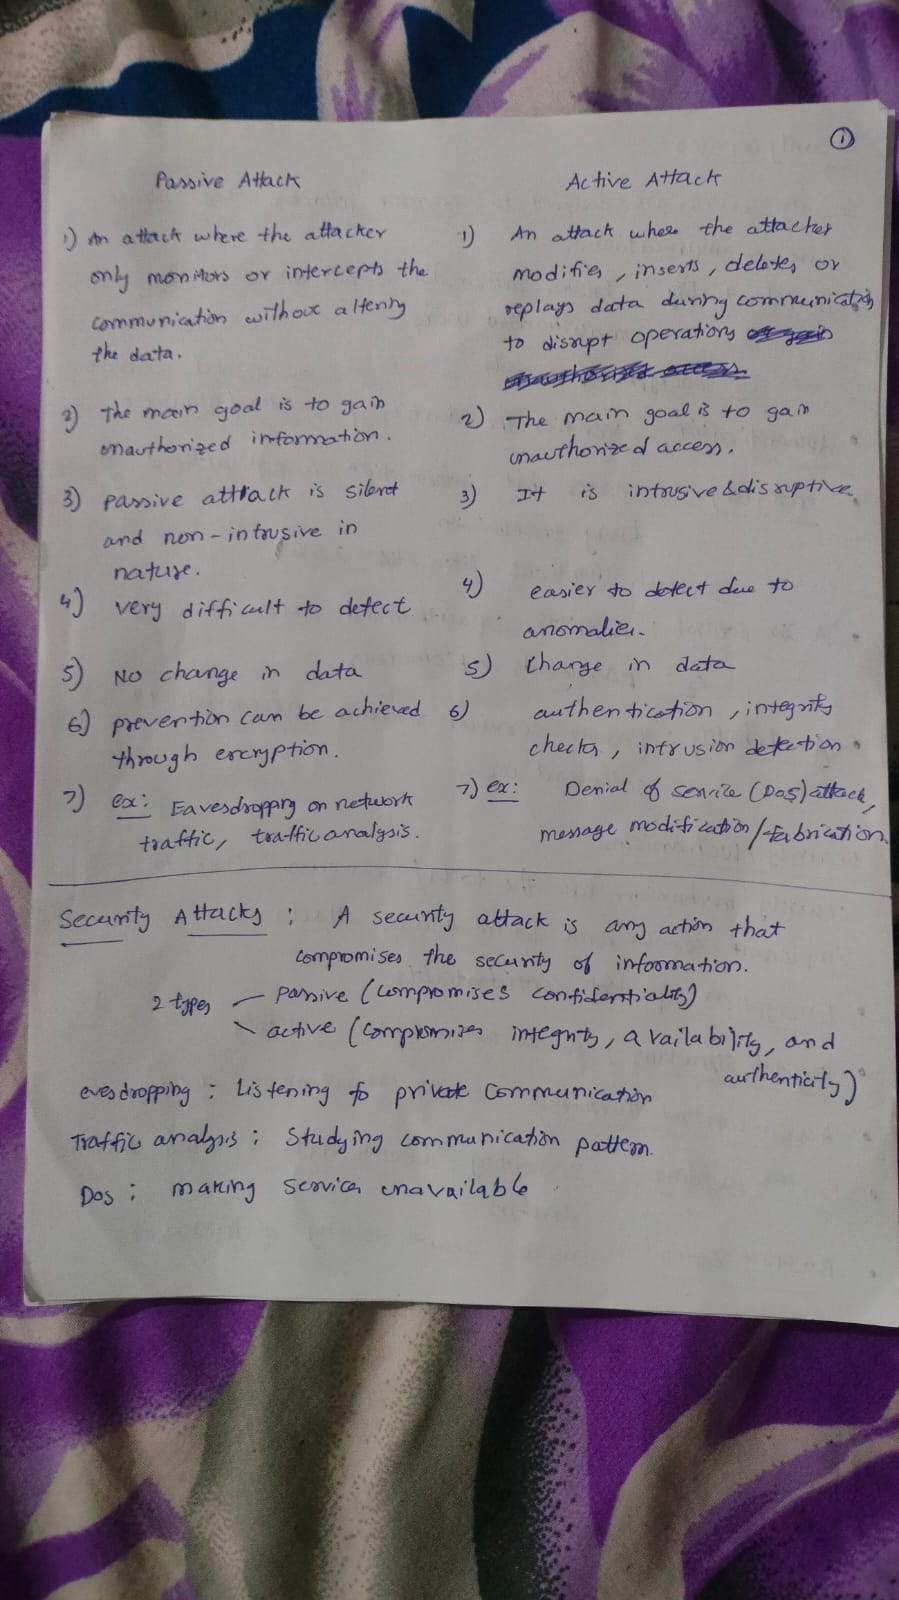 1
Passive Attack
1) An attack where the attacker
only monitors or intercepts the
communication without altering
the data.
2) The main goal is to gain
unauthorized information.
3) passive atttack is silent
and non-intrusive in
nature.
4) very difficult to detect
5) No change in data
6) prevention can be achieved
through encryption.
7) ex: Eavesdropping on network
traffic, traffic analysis.
Active Attack
1) An attack where the attacker
modifies, inserts, deletes or
replays data during communication
to disrupt operations
2) The main goal is to gain
unauthorized access.
3) It is intrusive & disruptive
4) easier to detect due to
anomalies.
5) Change in data
6) authentication, integrity
checks, intrusion detection.
7) ex: Denial of service (DoS) attack,
message modification/fabrication
Security Attacks : A security attack is any action that
compromises the security of information.
2 types
passive (compromises confidentiality)
active (compromises integrity, availability, and
authenticity)
evesdropping : Listening to private communication
Traffic analysis : Studying communication pattern.
Dos : making services unavailable